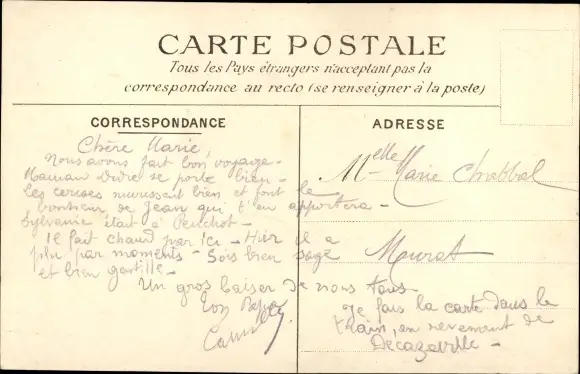 CARTE POSTALE
Tous les Pays étrangers n'acceptent pas la
correspondance au recto (se renseigner à la poste)
CORRESPONDANCE
Chère Marie,
Nous avons fait bon voyage -
Maman se porte bien -
Les cerises murissent bien et font le
bonheur de Jean qui t'en apportera -
Sylvanie était à Penchot -
Il fait chaud par ici - Hier il a
plu par moments - Sois bien sage
et bien gentille -
Un gros baiser de nous tous
Ton Papa
ADRESSE
Melle Marie Chabbal
Murat
Je fais la carte dans le
train, en revenant de
Decazeville -